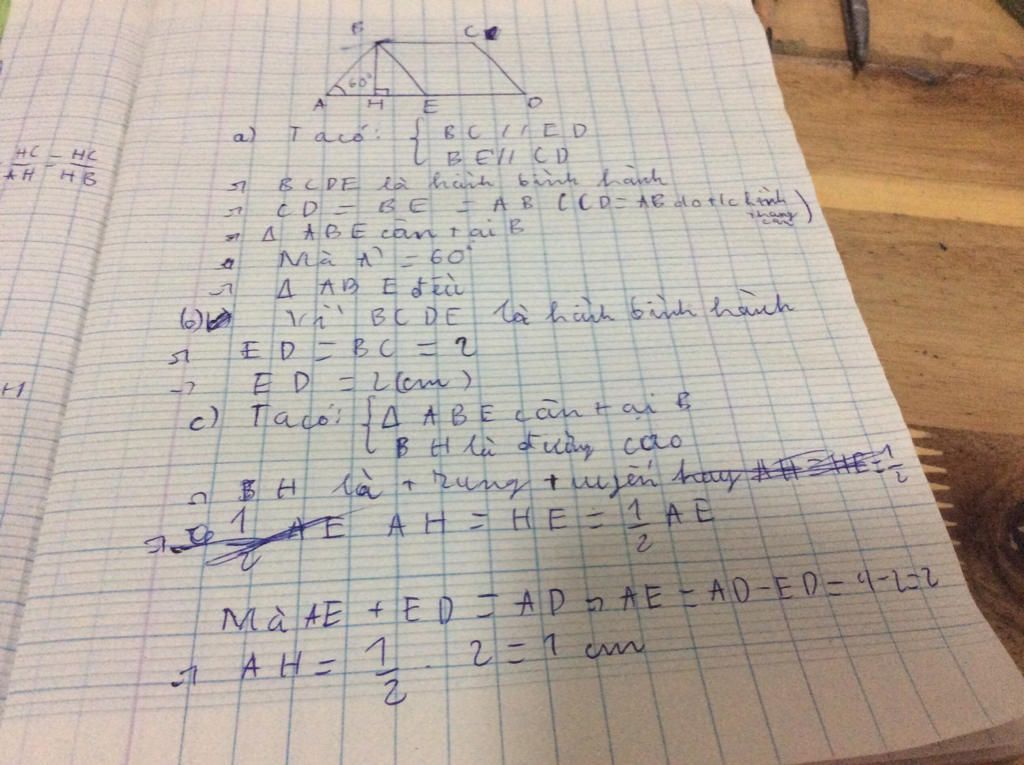 B C
60°
A H E D
a) Ta có: { BC // ED
BE // CD
→ BCDE là hình bình hành
HC/AH = HC/HB
→ CD = BE = AB (CD = AB do t/c hình thang cân)
→ Δ ABE cân tại B
Mà Â = 60°
→ Δ ABE đều
b) Vì BCDE là hình bình hành
→ ED = BC = 2
→ ED = 2 (cm)
c) Ta có: { Δ ABE cân tại B
BH là đường cao
→ BH là trung tuyến hay AH = HE = 1/2
→ 1/2 AE AH = HE = 1/2 AE
Mà AE + ED = AD → AE = AD - ED = 4-2=2
→ AH = 1/2 . 2 = 1 cm